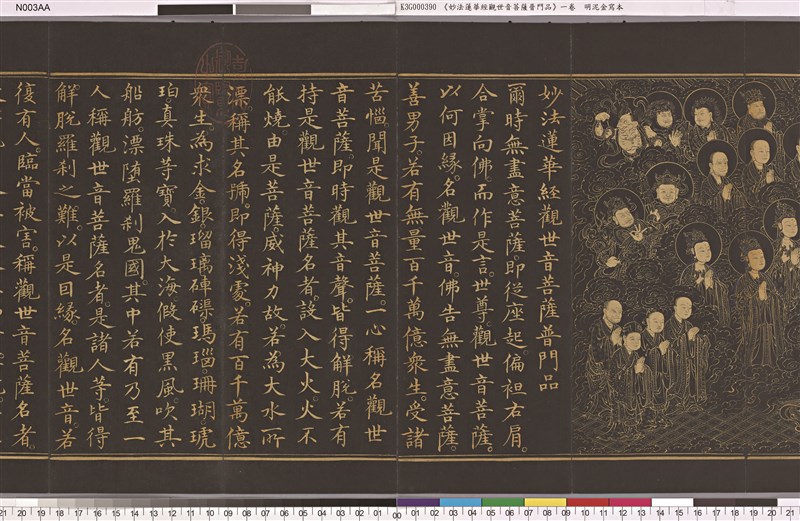 N003AA
K3G000390 《妙法蓮華經觀世音菩薩普門品》一卷 明泥金寫本
妙法蓮華經觀世音菩薩普門品
爾時無盡意菩薩。即從座起偏袒右肩。
合掌向佛。而作是言。世尊。觀世音菩薩。
以何因緣。名觀世音。佛告無盡意菩薩。
善男子。若有無量百千萬億衆生。受諸
苦惱聞是觀世音菩薩。一心稱名。觀世
音菩薩。即時觀其音聲。皆得解脫。若有
持是觀世音菩薩名者。設入大火。火不
能燒。由是菩薩。威神力故。若為大水所
漂。稱其名號。即得淺處。若有百千萬億
衆生。為求金。銀。瑠璃。硨磲。瑪瑙。珊瑚。琥
珀。真珠等寶。入於大海。假使黑風。吹其
船舫。漂墮羅剎鬼國。其中若有乃至一
人。稱觀世音菩薩名者。是諸人等。皆得
解脫羅剎之難。以是因緣。名觀世音。若
復有人。臨當被害。稱觀世音菩薩名者。
21 20 19 18 17 16 15 14 13 12 11 10 09 08 07 06 05 04 03 02 01 00 01 02 03 04 05 06 07 08 09 10 11 12 13 14 15 16 17 18 19 20 21